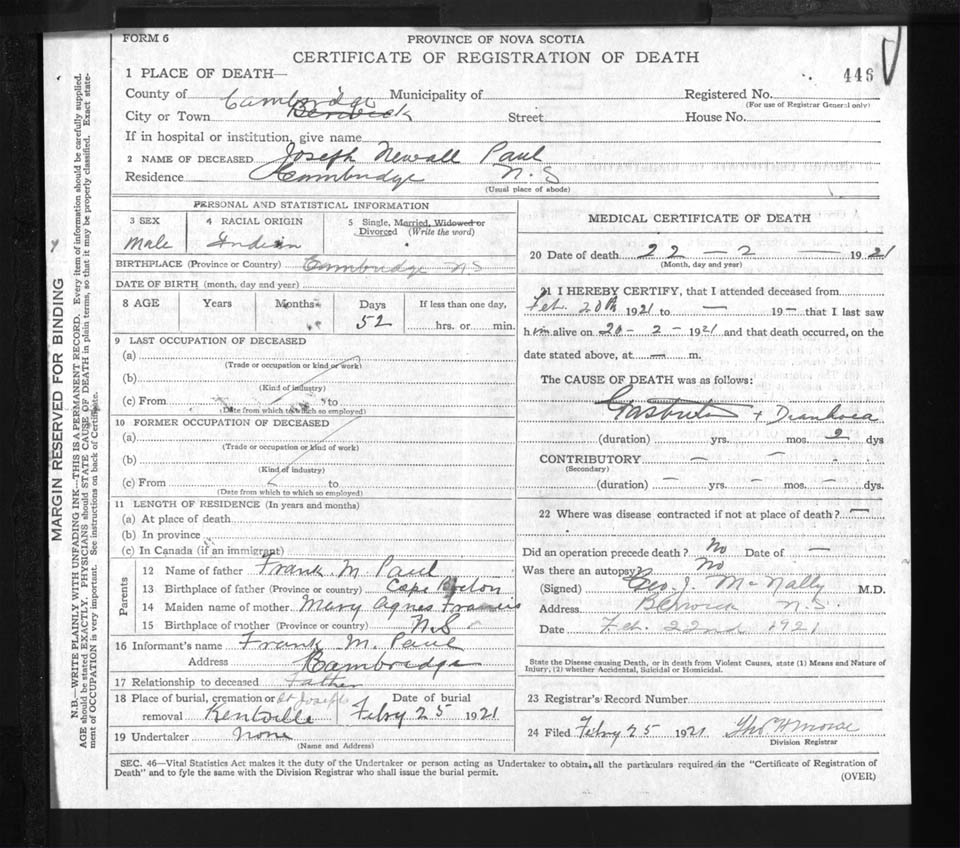 FORM 6
PROVINCE OF NOVA SCOTIA
CERTIFICATE OF REGISTRATION OF DEATH
446
1 PLACE OF DEATH—
County of Municipality of Registered No.
Cambridge
(For use of Registrar General only)
City or Town Berwick Street House No.
If in hospital or institution, give name
2 NAME OF DECEASED Joseph Newall Paul
Residence Cambridge N.S
(Usual place of abode)
PERSONAL AND STATISTICAL INFORMATION
3 SEX 4 RACIAL ORIGIN 5 Single, Married, Widowed or Divorced (Write the word)
Male Indian
BIRTHPLACE (Province or Country) Cambridge N S
DATE OF BIRTH (month, day and year)
8 AGE Years Months Days If less than one day,
52 hrs. or min.
9 LAST OCCUPATION OF DECEASED
(a)
(Trade or occupation or kind of work)
(b)
(Kind of industry)
(c) From to
(Date from which to which so employed)
10 FORMER OCCUPATION OF DECEASED
(a)
(Trade or occupation or kind of work)
(b)
(Kind of industry)
(c) From to
(Date from which to which so employed)
11 LENGTH OF RESIDENCE (In years and months)
(a) At place of death
(b) In province
(c) In Canada (if an immigrant)
Parents
12 Name of father Frank M. Paul
13 Birthplace of father (Province or country) Cape Breton
14 Maiden name of mother Mary Agnes Francis
15 Birthplace of mother (Province or country) N.S
16 Informant's name Frank M. Paul
Address Cambridge
17 Relationship to deceased Father
18 Place of burial, cremation or St Josephs Date of burial
removal Kentville Febry 25 1921
19 Undertaker none
(Name and Address)
MEDICAL CERTIFICATE OF DEATH
20 Date of death 22 — 2 — 1921
(Month, day and year)
21 I HEREBY CERTIFY, that I attended deceased from
Feb. 20th 1921 to — 19 — that I last saw
him alive on 20 - 2 - 1921 and that death occurred, on the
date stated above, at — m.
The CAUSE OF DEATH was as follows:
+ Diarrhoea
(duration) yrs. mos. 2 dys
CONTRIBUTORY — —
(Secondary)
(duration) — yrs. — mos. — dys.
22 Where was disease contracted if not at place of death? —
Did an operation precede death? No Date of —
Was there an autopsy? No
(Signed) Geo. J. McNally M.D.
Address Berwick N.S.
Date Feb. 22nd 1921
State the Disease causing Death, or in death from Violent Causes, state (1) Means and Nature of
Injury, (2) whether Accidental, Suicidal or Homicidal.
23 Registrar's Record Number
24 Filed Febry 25 1921 Thos H Morse
Division Registrar
SEC. 46—Vital Statistics Act makes it the duty of the Undertaker or person acting as Undertaker to obtain, all the particulars required in the "Certificate of Registration of
Death" and to fyle the same with the Division Registrar who shall issue the burial permit.
(OVER)
MARGIN RESERVED FOR BINDING
N.B.—WRITE PLAINLY WITH UNFADING INK—THIS IS A PERMANENT RECORD. Every item of information should be carefully supplied.
AGE should be stated EXACTLY. PHYSICIANS should STATE CAUSE OF DEATH in plain terms, so that it may be properly classified. Exact state-
ment of OCCUPATION is very important. See instructions on back of Certificate.